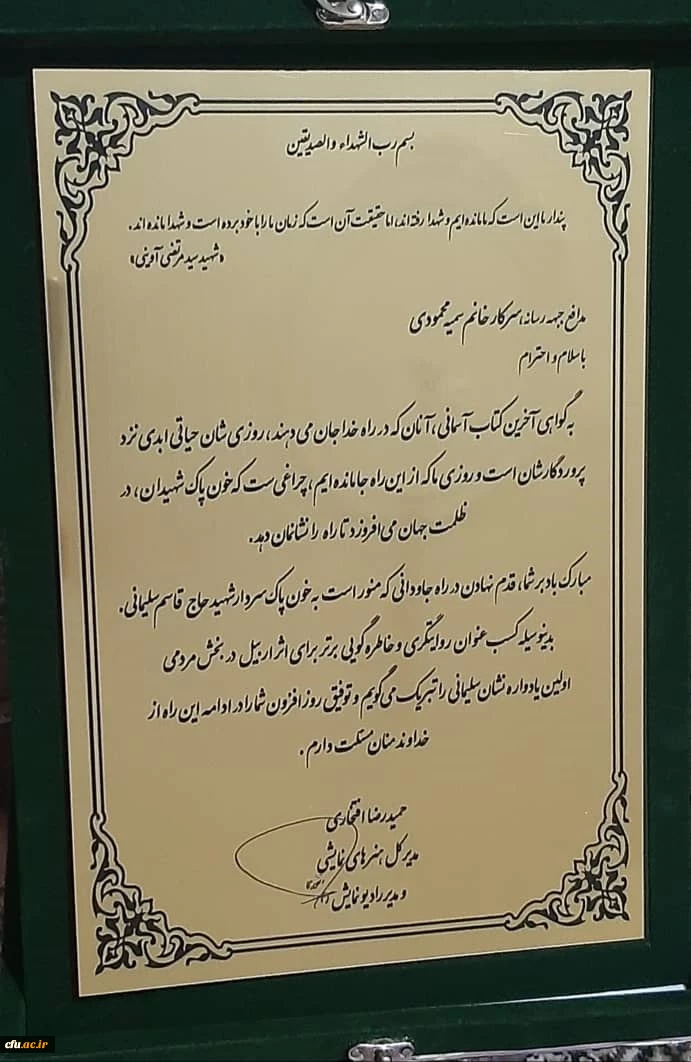 بسم رب الشهداء و الصدیقین
پندار ما این است که ما مانده ایم و شهدا رفته اند، اما حقیقت آن است که زمان ما را با خود برده است و شهدا مانده اند.
«شهید سید مرتضی آوینی»
مدافع جبهه رسانه، سرکار خانم سمیه محمودی
با سلام و احترام
به گواهی آخرین کتاب آسمانی، آنان که در راه خدا جان می دهند، روزی شان حیاتی ابدی نزد
پروردگارشان است و روزی ما که از این راه جامانده ایم، چراغی ست که خون پاک شهیدان، در
ظلمت جهان می افروزد تا راه را نشانمان دهد.
مبارک باد بر شما، قدم نهادن در راه جاودانی که منور است به خون پاک سردار شهید حاج قاسم سلیمانی.
بدینوسیله کسب عنوان روایتگری و خاطره گویی برتر برای اثر اربیل در بخش مردمی
اولین یادواره نشان سلیمانی را تبریک می گویم و توفیق روز افزون شما را در ادامه این راه از
خداوند منان مسئلت دارم.
حمیدرضا افتخاری
مدیر کل هنرهای نمایشی
و مدیر رادیو نمایش
cfu.ac.ir